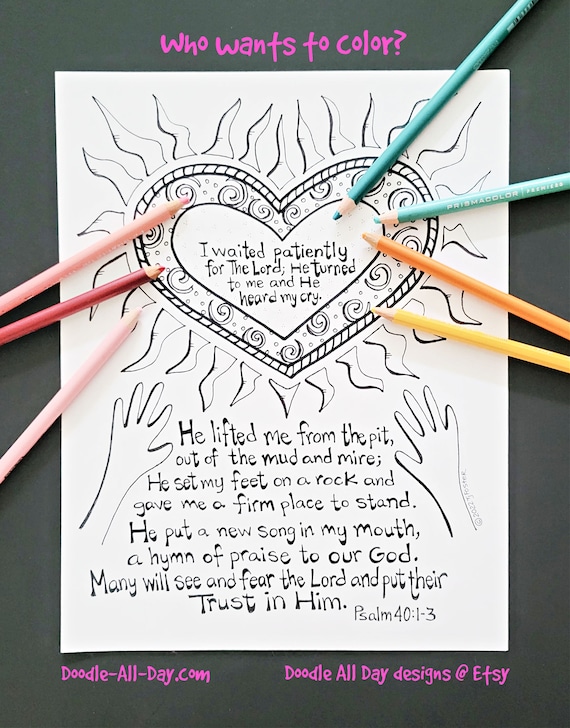 Who wants to color?
PRISMACOLOR PREMIER
I waited patiently
for The Lord; He turned
to me and He
heard my cry.
He lifted me from the pit,
out of the mud and mire;
He set my feet on a rock and
gave me a firm place to stand.
He put a new song in my mouth,
a hymn of praise to our God.
Many will see and fear the Lord and put their
Trust in Him.
Psalm 40:1-3
Doodle-All-Day.com
Doodle All Day designs @ Etsy